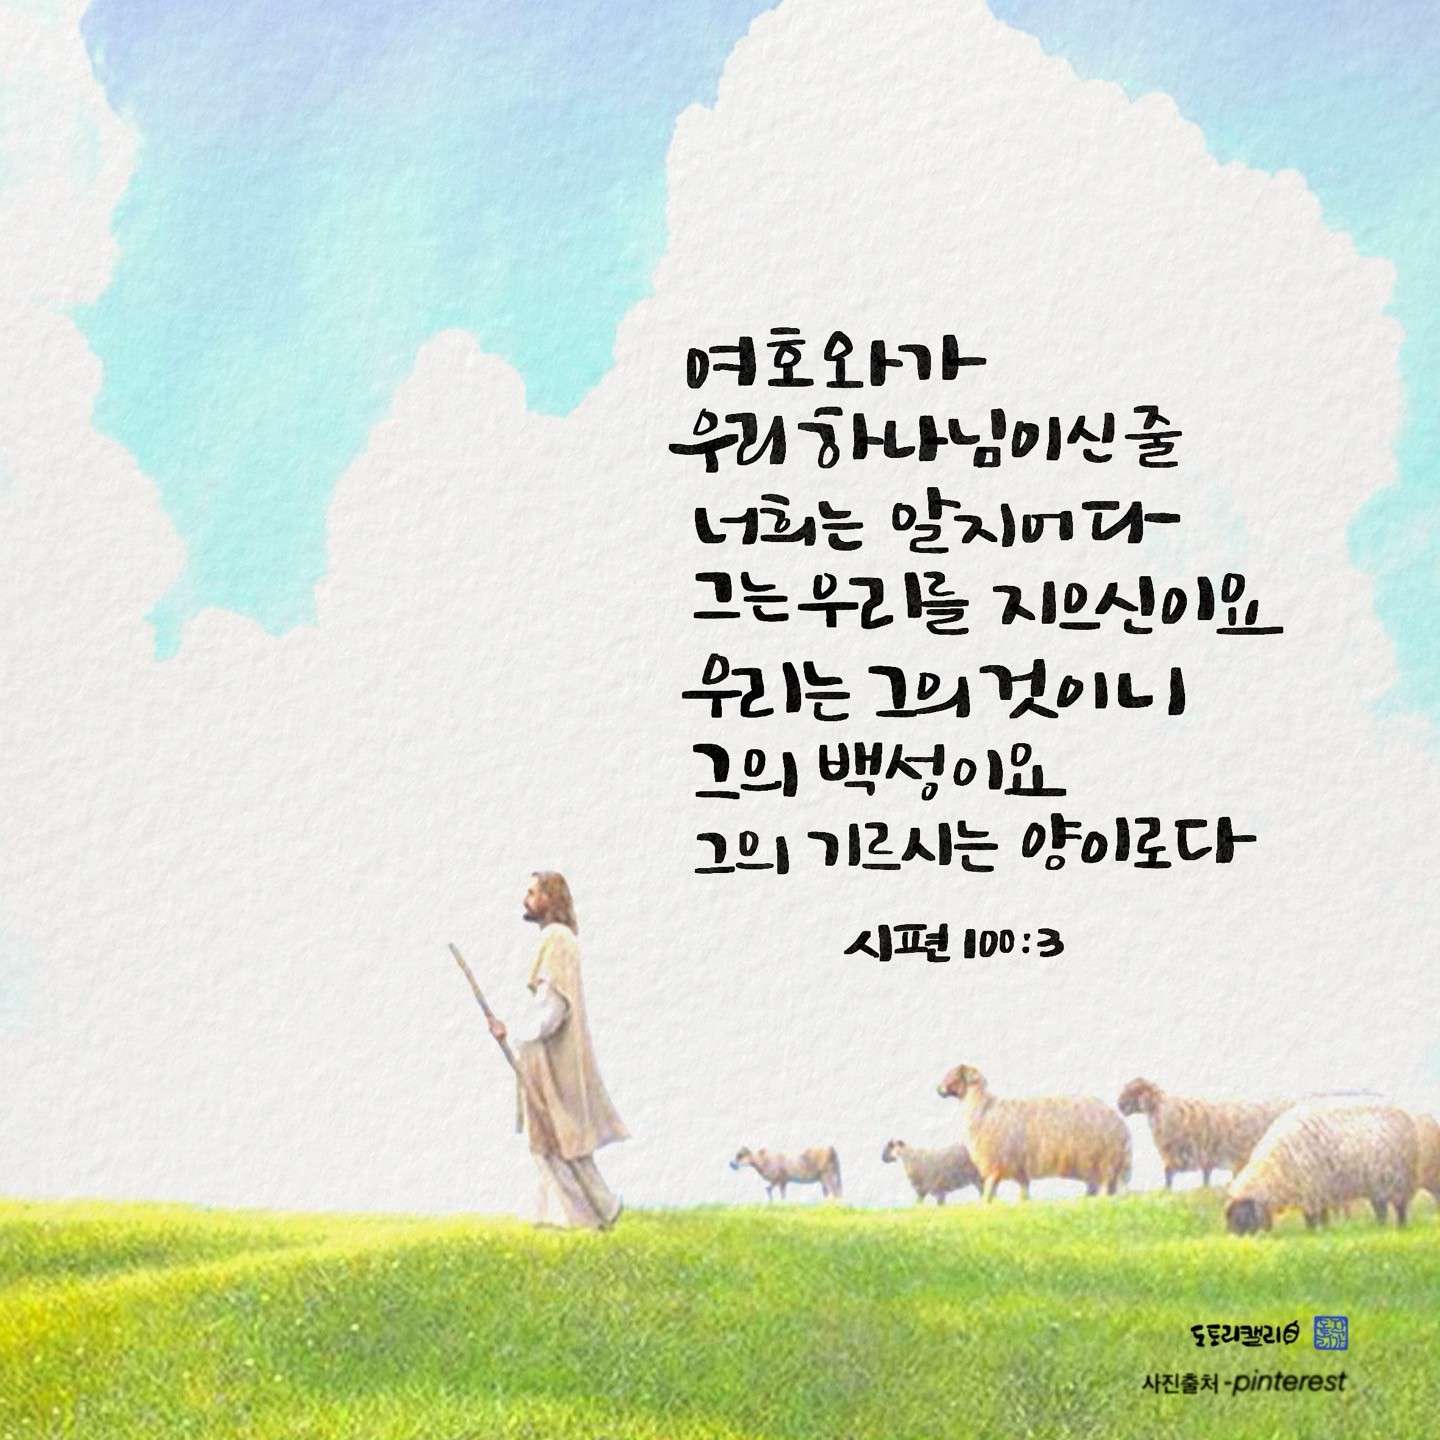 여호와가
우리 하나님이신 줄
너희는 알지어다
그는 우리를 지으신이요
우리는 그의 것이니
그의 백성이요
그의 기르시는 양이로다
시편 100:3
도토리캘리
사진출처-pinterest